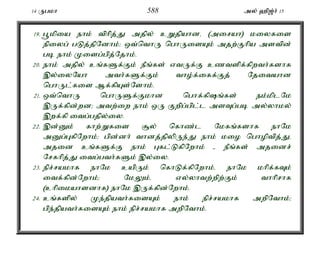 14 ருபமா 588 அல் ஹிஜ்ர் 15
19. பூமியை நாம் விரித்து அதில் உறுதியான, (அசையா) மலைகளை
நிலைப் படுத்தினோம்; ஒவ்வொரு பொருளையும் அதற்குரிய அளவின்
படி நாம் முளைப்பித்தோம்.
20. நாம் அதில் உங்களுக்கும் நீங்கள் எவருக்கு உணவளிக்கிறவர்களாக
இல்லையோ அவர்களுக்கும் வாழ்க்கைக்குத் தேவையான
பொருட்களை ஆக்கியுள்ளோம்.
21. ஒவ்வொரு பொருளுக்குமான பொக்கிஷங்கள் நம்மிடமே
இருக்கின்றன; அவற்றை நாம் ஒரு குறிப்பிட்ட அளவுப்படி அல்லாமல்
இறக்கி வைப்பதில்லை.
22. இன்னும் காற்றுகளை சூல் கொண்ட மேகங்களாக நாமே
அனுப்புகிறோம்; பின்னர் வானத்திலிருந்து நாம் மழை பொழிவித்து,
அதனை உங்களுக்கு நாம் புகட்டுகிறோம் - நீங்கள் அதனைச்
சேகரித்து வைப்பவர்களும் இல்லை.
23. நிச்சயமாக நாமே உயிரும் கொடுக்கிறோம், நாமே மரிக்கவும்
வைக்கின்றோம்; மேலும், எல்லாவற்றிற்கும் வாரிசாக
(உரிமையாளனாக) நாமே இருக்கின்றோம்.
24. உங்களில் முந்தியவர்களையும் நாம் நிச்சயமாக அறிவோம்;
பிந்தியவர்களையும் நாம் நிச்சயமாக அறிவோம்.